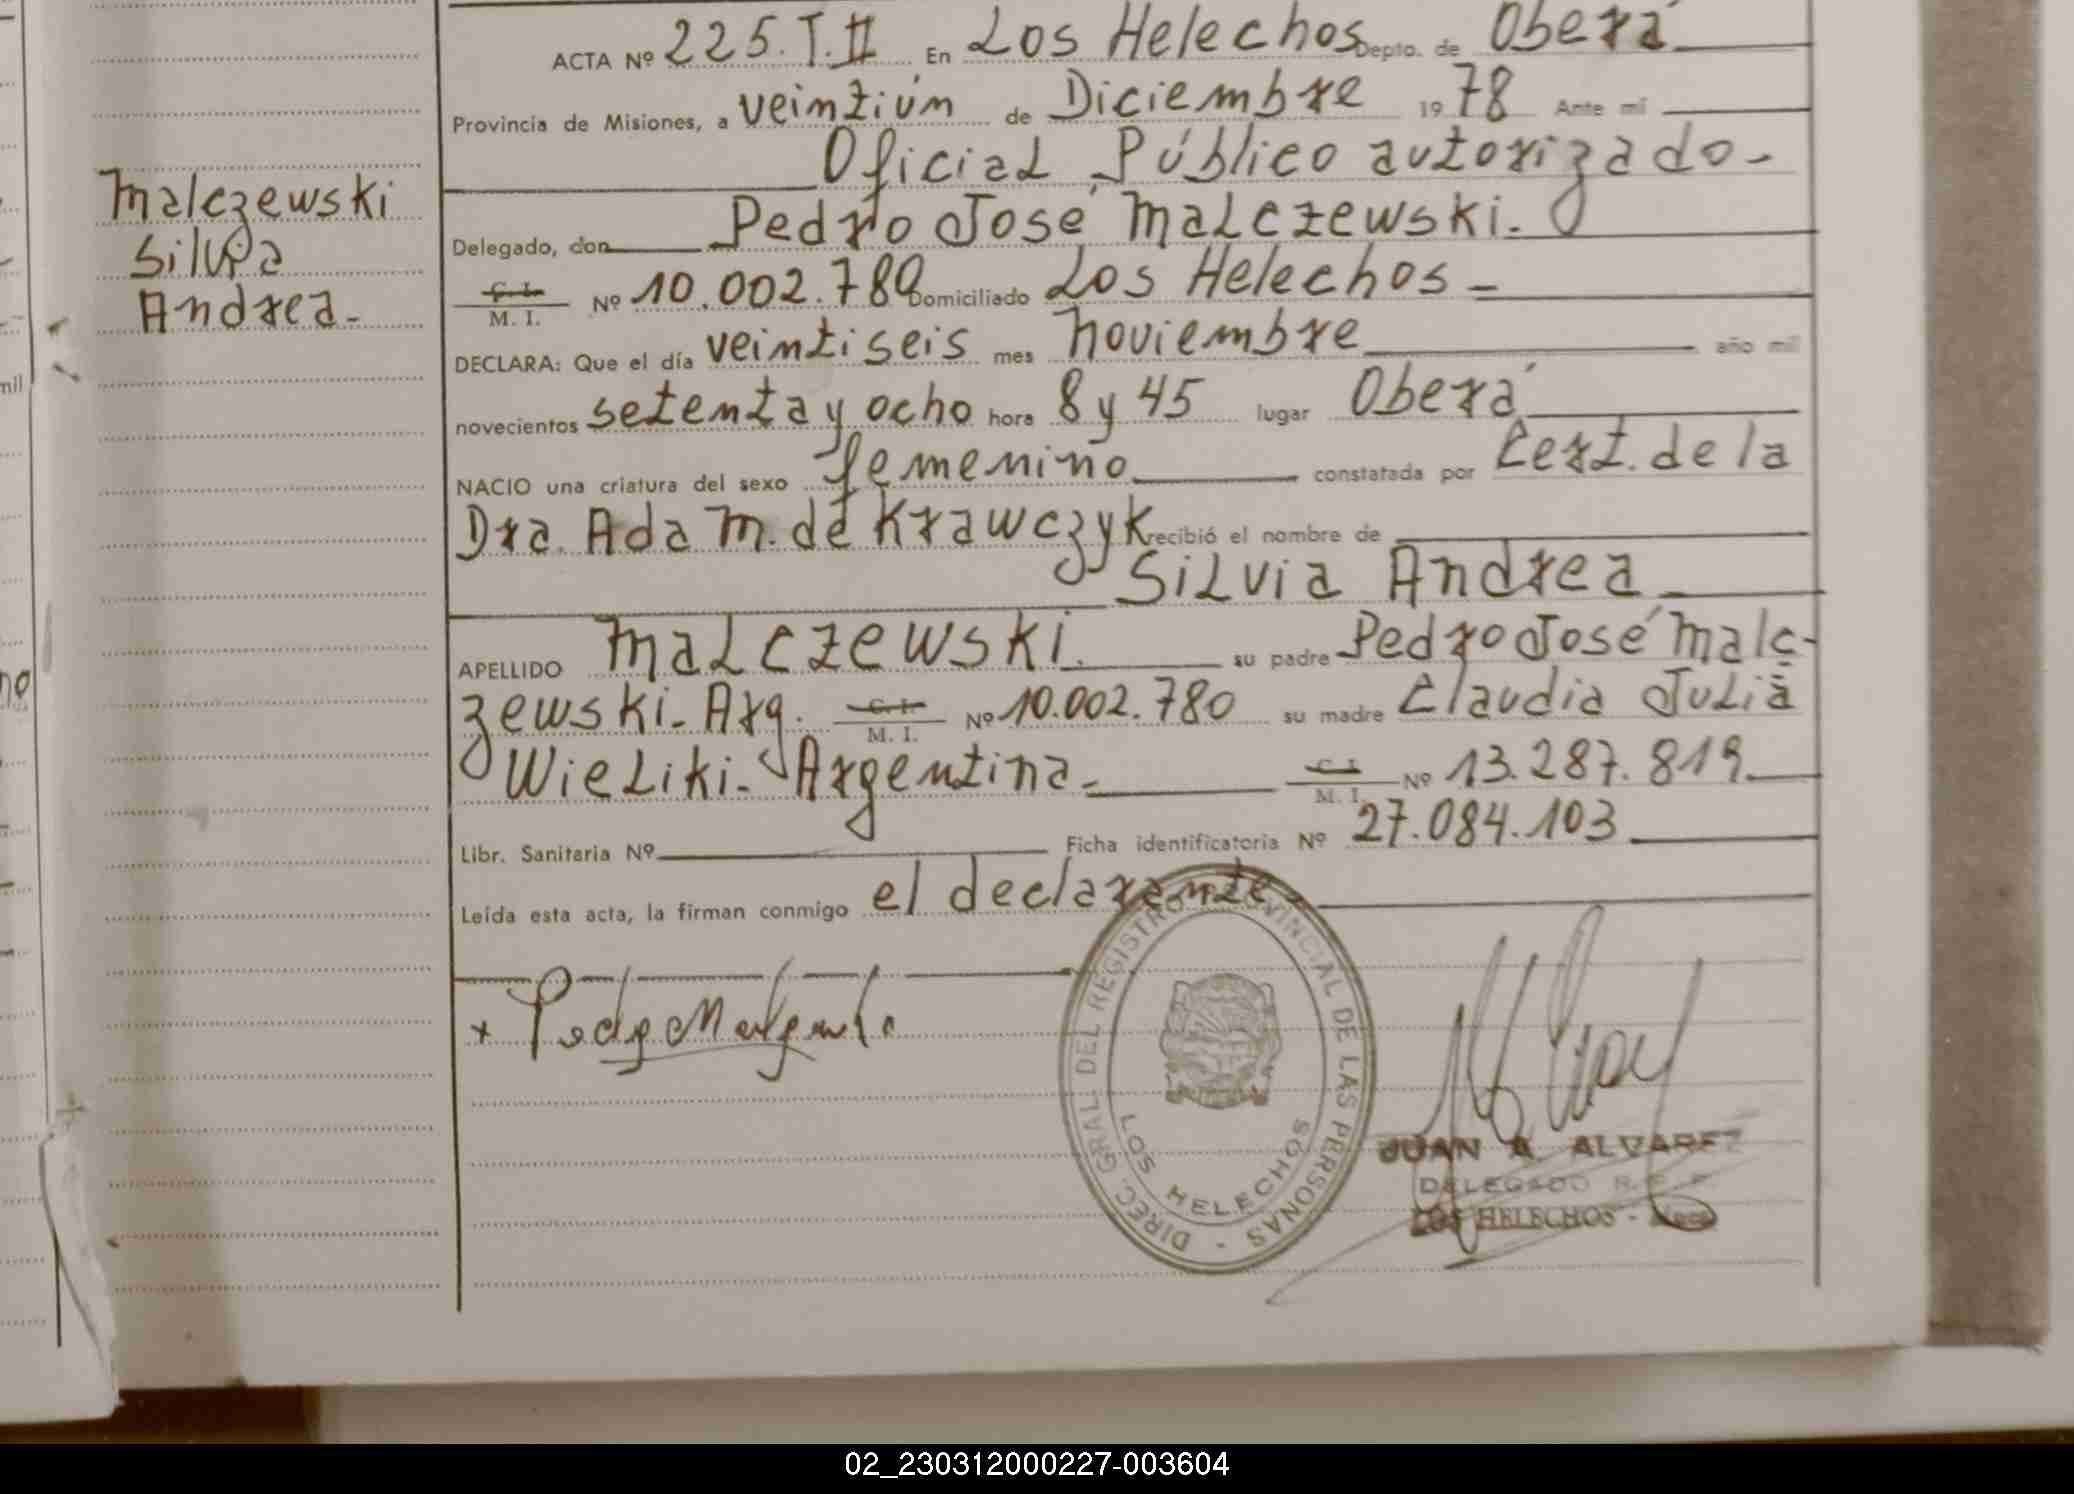 Malczewski
Silvia
Andrea-
ACTA Nº 225.T.II En Los Helechos Depto. de Oberá
Provincia de Misiones, a veintiún de Diciembre 1978 Ante mí
Oficial Público autorizado-
Delegado, don Pedro José Malczewski.
C. I. M. I. Nº 10.002.780 Domiciliado Los Helechos-
DECLARA: Que el día veintiseis mes noviembre año mil
novecientos setenta y ocho hora 8 y 45 lugar Oberá
NACIO una criatura del sexo femenino constatada por Cert. de la
Dra. Ada M. de Krawczyk recibió el nombre de
Silvia Andrea
APELLIDO Malczewski. su padre Pedro José Malc-
zewski- Arg. C. I. M. I. Nº 10.002.780 su madre Claudia Julia
Wieliki- Argentina- C. I. M. I. Nº 13.287.819
Libr. Sanitaria Nº Ficha identificatoria Nº 27.084.103
Leída esta acta, la firman conmigo el declarante
DIREC. GRAL. DEL REGISTRO PROVINCIAL DE LAS PERSONAS -
LOS HELECHOS
JUAN A. ALVAREZ
DELEGADO R. P. P.
LOS HELECHOS -
mil
no
02_230312000227-003604